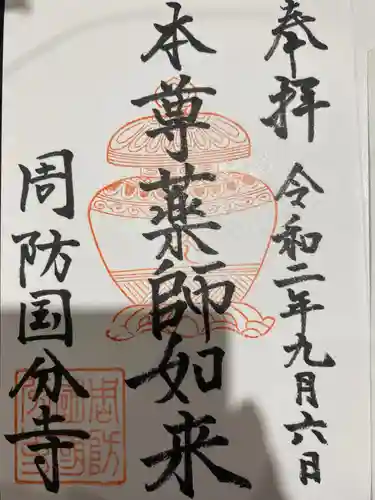 奉拝
令和二年九月六日
本尊薬師如来
周防国分寺